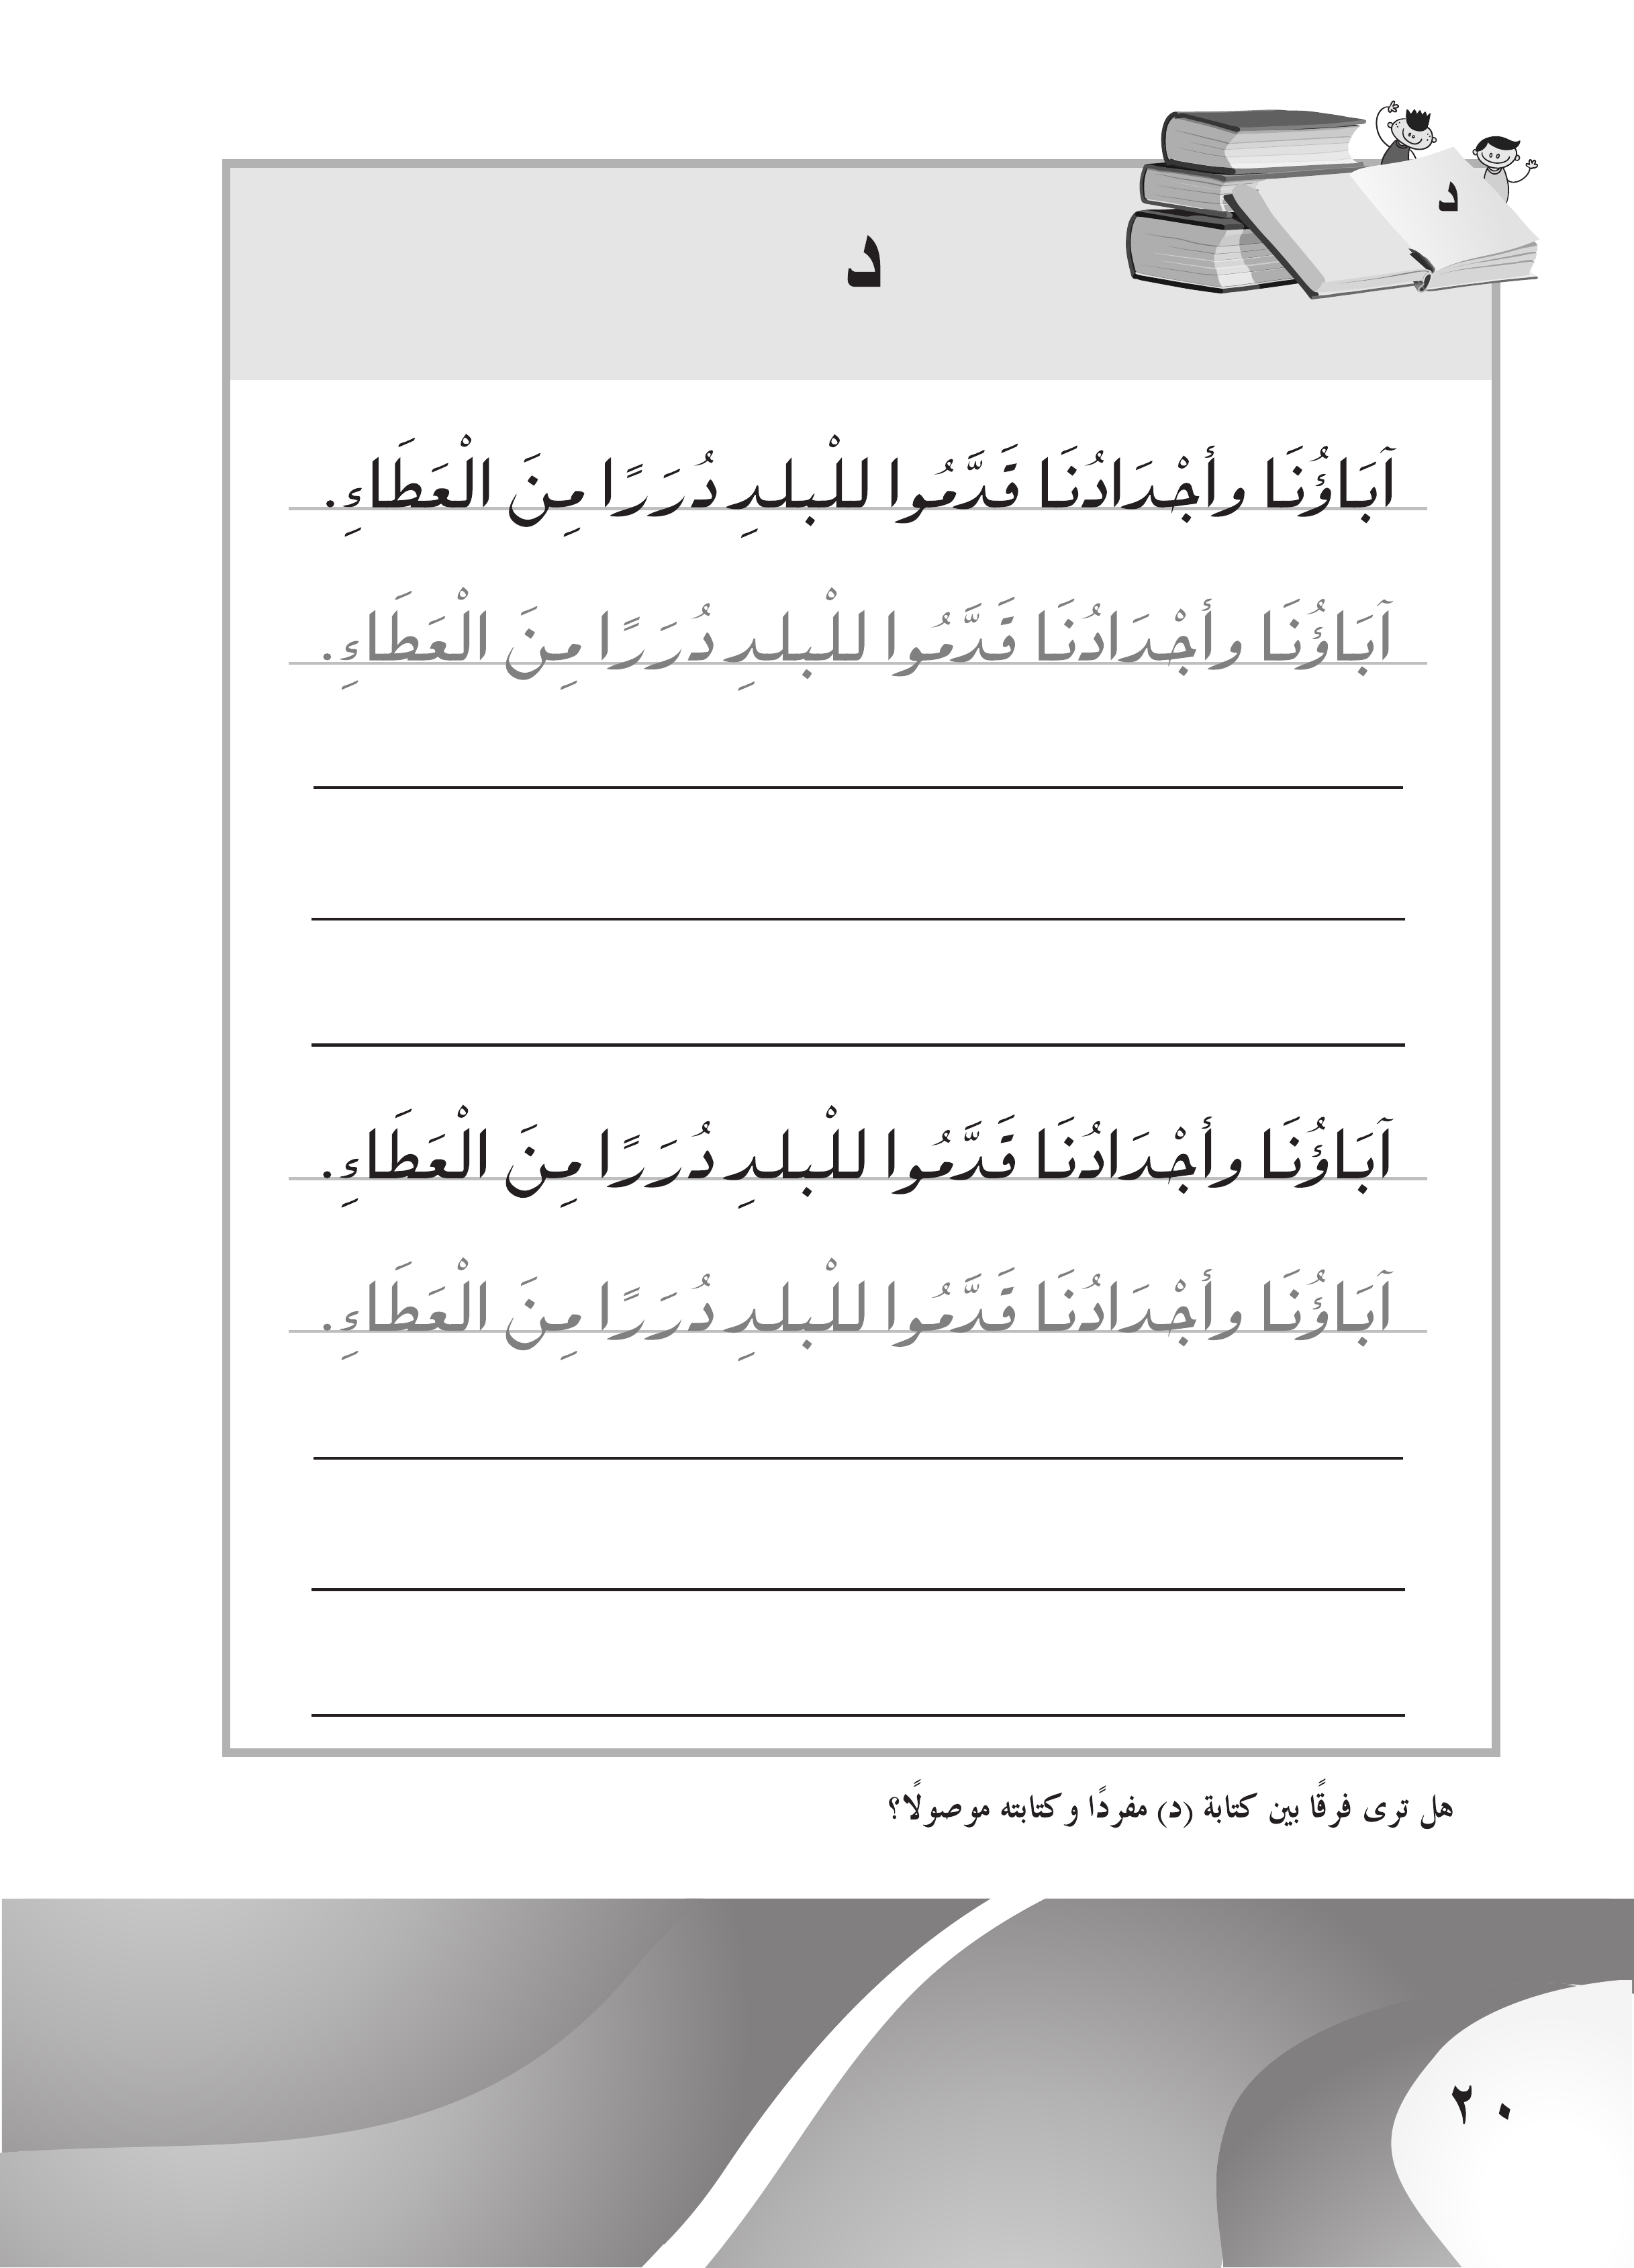 د
د
آبَاؤُنَا وأجْدَادُنَا قَدَّمُوا للْبلدِ دُرَرًا مِنَ الْعَطَاءِ.
آبَاؤُنَا وأجْدَادُنَا قَدَّمُوا للْبلدِ دُرَرًا مِنَ الْعَطَاءِ.
آبَاؤُنَا وأجْدَادُنَا قَدَّمُوا للْبلدِ دُرَرًا مِنَ الْعَطَاءِ.
آبَاؤُنَا وأجْدَادُنَا قَدَّمُوا للْبلدِ دُرَرًا مِنَ الْعَطَاءِ.
هل ترى فرقًا بين كتابة (د) مفردًا وكتابته موصولًا؟
٢٠